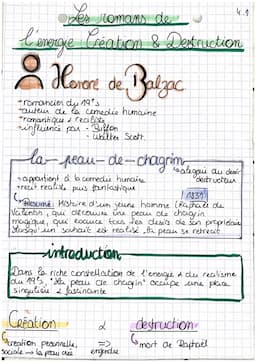 4.1
Les romans de
l'énergie Création & Destruction
Honoré de Balzac
• romancier du 19es
• auteur de la comédie humaine
• romantique & réaliste
• influencé par - Buffon
- Walter Scott
la-peau-de-chagrin
↳ allégorie du désir destructeur
• appartient à la comédie humaine
• récit réaliste puis fantastique
1831
Résumé: Histoire d'un jeune homme (Raphaël de
Valentin, qui découvre une peau de chagrin
magique, qui exauce tous les désirs de son propriétaire
lorsqu'un souhait est réalisé, la peau se rétrécit
introduction
Dans la riche constellation de l'énergie & du réalisme
du 19es, "La peau de chagrin" occupe une place
singulière & fascinante
Création & destruction
↳ création personnelle, => ↳ mort de Raphaël
sociale → la peau crée engendre